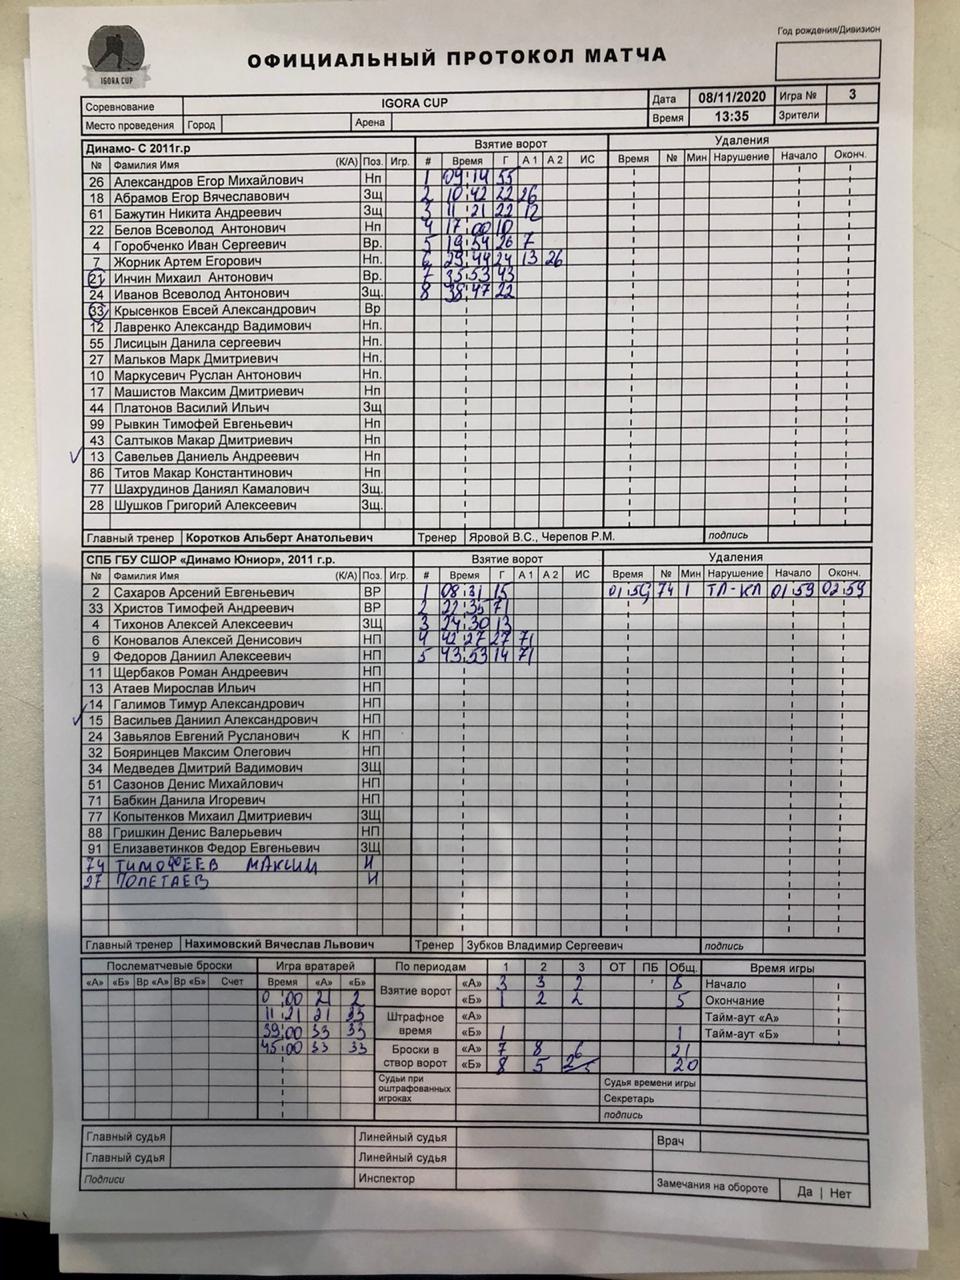 IGORA CUP
Год рождения/Дивизион
ОФИЦИАЛЬНЫЙ ПРОТОКОЛ МАТЧА
Соревнование IGORA CUP Дата 08/11/2020 Игра № 3
Место проведения Город Арена Время 13:35 Зрители
Динамо- С 2011г.р Взятие ворот Удаления
№ Фамилия Имя (К/А) Поз. Игр. # Время Г А 1 А 2 ИС Время № Мин Нарушение Начало Оконч.
26 Александров Егор Михайлович Нп 1 09:14 55
18 Абрамов Егор Вячеславович Зщ 2 10:42 22 26
61 Бажутин Никита Андреевич Зщ 3 11:21 22 12
22 Белов Всеволод Антонович Нп 4 17:00 10
4 Горобченко Иван Сергеевич Вр. 5 19:54 26 7
7 Жорник Артем Егорович Нп. 6 29:44 24 13 26
21 Инчин Михаил Антонович Вр. 7 35:53 43
24 Иванов Всеволод Антонович Зщ. 8 38:47 22
33 Крысенков Евсей Александрович Вр
12 Лавренко Александр Вадимович Нп.
55 Лисицын Данила сергеевич Нп.
27 Мальков Марк Дмитриевич Нп.
10 Маркусевич Руслан Антонович Нп.
17 Машистов Максим Дмитриевич Нп
44 Платонов Василий Ильич Зщ
99 Рывкин Тимофей Евгеньевич Нп
43 Салтыков Макар Дмитриевич Нп
13 Савельев Даниель Андреевич Нп
86 Титов Макар Константинович Нп
77 Шахрудинов Даниял Камалович Зщ.
28 Шушков Григорий Алексеевич Зщ.
Главный тренер Коротков Альберт Анатольевич Тренер Яровой В.С., Черепов Р.М. подпись
СПБ ГБУ СШОР «Динамо Юниор», 2011 г.р. Взятие ворот Удаления
№ Фамилия Имя (К/А) Поз. Игр. # Время Г А 1 А 2 ИС Время № Мин Нарушение Начало Оконч.
2 Сахаров Арсений Евгеньевич ВР 1 08:31 15 01:59 74 1 ТЛ-КЛ 01:59 02:59
33 Христов Тимофей Андреевич ВР 2 22:35 71
4 Тихонов Алексей Алексеевич ЗЩ 3 24:30 13
6 Коновалов Алексей Денисович НП 4 42:27 27 71
9 Федоров Даниил Алексеевич НП 5 43:53 14 71
11 Щербаков Роман Андреевич НП
13 Атаев Мирослав Ильич НП
14 Галимов Тимур Александрович НП
15 Васильев Даниил Александрович НП
24 Завьялов Евгений Русланович К НП
32 Бояринцев Максим Олегович НП
34 Медведев Дмитрий Вадимович ЗЩ
51 Сазонов Денис Михайлович НП
71 Бабкин Данила Игоревич НП
77 Копытенков Михаил Дмитриевич ЗЩ
88 Гришкин Денис Валерьевич НП
91 Елизаветинков Федор Евгеньевич ЗЩ
74 ТИМОФЕЕВ МАКСИМ И
27 ПОЛЕТАЕВ И
Главный тренер Нахимовский Вячеслав Львович Тренер Зубков Владимир Сергеевич подпись
Послематчевые броски Игра вратарей По периодам 1 2 3 ОТ ПБ Общ. Время игры
«А» «Б» Вр «А» Вр «Б» Счет Время «А» «Б» Взятие ворот «А» 3 3 2 8 Начало
0:00 21 2 «Б» 1 2 2 5 Окончание
11:21 21 33 Штрафное время «А» Тайм-аут «А»
39:00 33 33 «Б» 1 1 Тайм-аут «Б»
45:00 33 33 Броски в створ ворот «А» 7 8 6 21
«Б» 8 5 20
Судьи при оштрафованных игроках Судья времени игры
Секретарь
подпись
Главный судья Линейный судья Врач
Главный судья Линейный судья
Подписи Инспектор Замечания на обороте Да | Нет